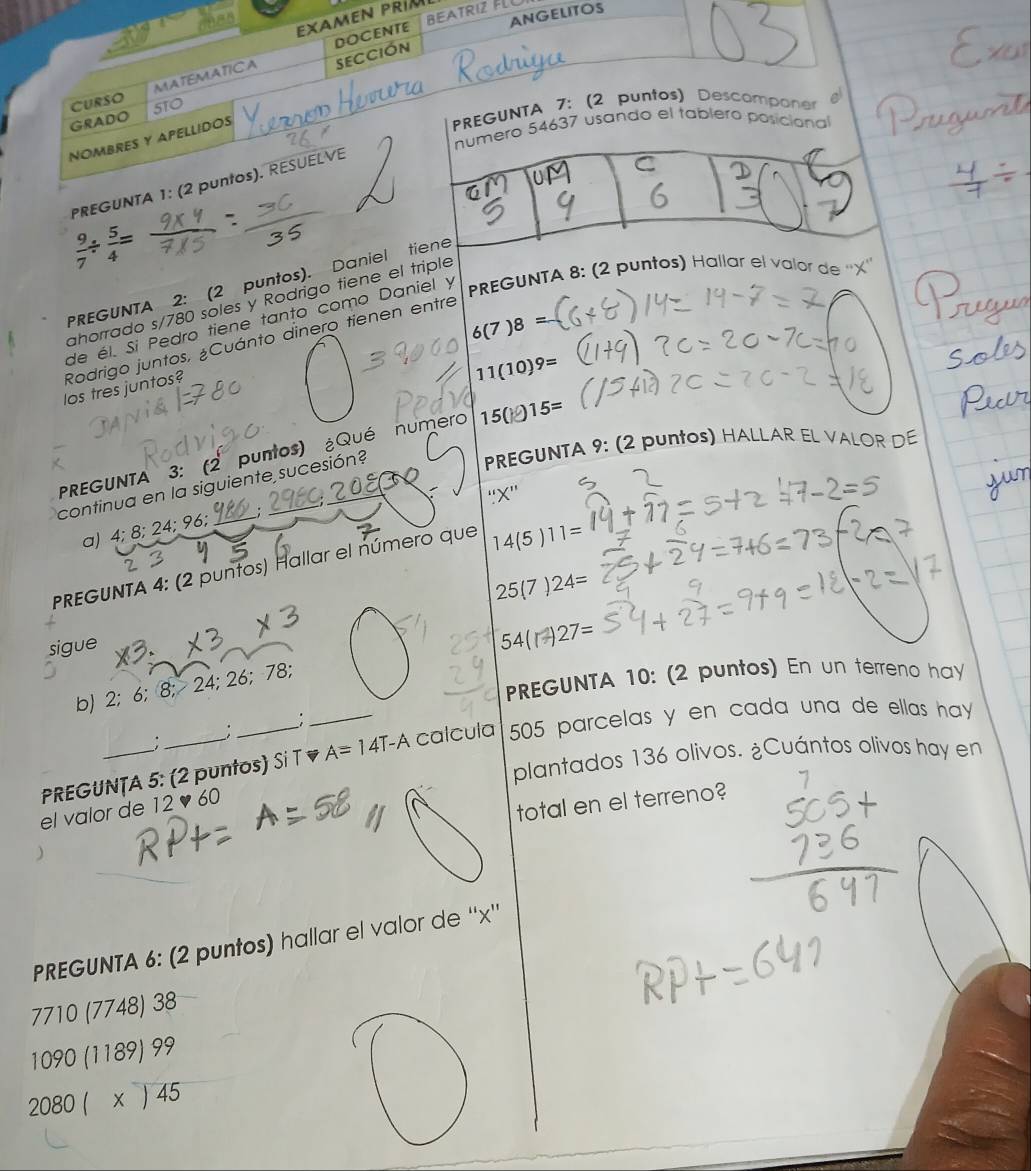 EXAMEN PRIM
DOCENTE BEATRIZ
SECCIÓN ANGELITOS
03
CURSO MATEMATICA
GRADO 5TO
NOMBRES Y APELLIDOS Yerson Herrera Rodrigu
PREGUNTA 1: (2 puntos). RESUELVE
9/7 ÷ 5/4 = 9x4/7x5 = 36/35
2
PREGUNTA 2: (2 puntos). Daniel tiene
ahorrado s/780 soles y Rodrigo tiene el triple
de él. Si Pedro tiene tanto como Daniel y
Rodrigo juntos, ¿Cuánto dinero tienen entre
los tres juntos?
0
DANiel=780
Rodrigo
Pedro
PREGUNTA 3: (2 puntos) ¿Qué numero
continua en la siguiente sucesión?
a) 4; 8; 24; 96; 480; 2980; 20830
2 3 4 5 6 7
PREGUNTA 4: (2 puntos) Hallar el número que
sigue
x3 x3 x3
b) 2; 6; 8; 24; 26; 78;
____; ____; ____; ____
0
PREGUNTA 5: (2 puntos) Si T ♥ A= 14T-A calcula
el valor de 12 ♥ 60
RPt= A=58 //
0
PREGUNTA 6: (2 puntos) hallar el valor de "x"
7710 (7748) 38
1090 (1189) 99
2080 ( x ) 45
0
PREGUNTA 7: (2 puntos) Descomponer el
numero 54637 usando el tablero posicional
UM C D
5 4 6 3 7
PREGUNTA 8: (2 puntos) Hallar el valor de "X"
6(7)8 = (6+8)14= 14-7=7
11(10)9= (11+9) 20=20-10=10
15( )15=
0
PREGUNTA 9: (2 puntos) HALLAR EL VALOR DE
"X"
14(5)11= 14+11=5+2=7-2=5
25(7)24= 25+24=7+6=13
54(17)27= 54+27=9+9=18-2=17
PREGUNTA 10: (2 puntos) En un terreno hay
505 parcelas y en cada una de ellas hay
plantados 136 olivos. ¿Cuántos olivos hay en
total en el terreno?
505+
136
641
RPt=641
0
Pregunt
4/7 ÷
Pregun
soles
jun